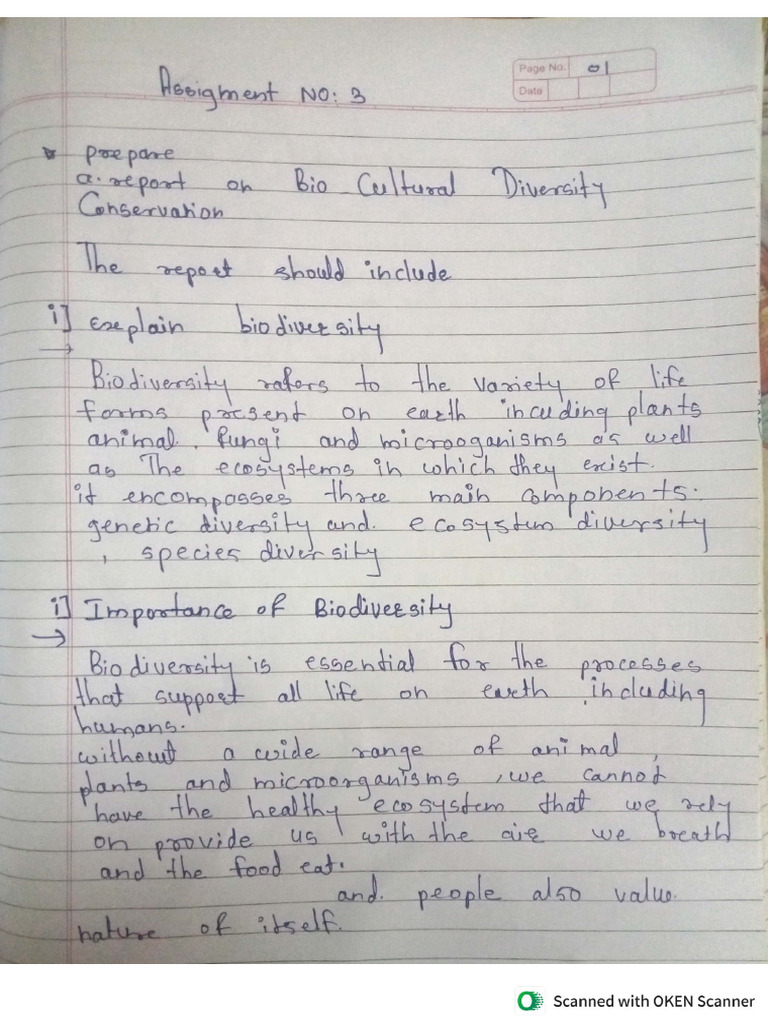 Page No. 01
Date
Assigment NO: 3
prepare
a. report on Bio Cultural Diversity
Conservation
The report should include
i] Explain biodiversity
→
Biodiversity rafers to the variety of life
forms present on earth incuding plants
animal, fungi and microoganisms as well
as The ecosystems in which they exist.
it encompasses three main components:
genetic diversity and. ecosystem diversity
, species diversity
i] Importance of Biodiversity
→
Biodiversity is essential for the processes
that support all life on earth including
humans.
without a wide range of animal,
plants and microorganisms, we cannot
have the healthy ecosystem that we rely
on provide us with the aire we breath
and the food eat.
and. people also value.
nature of itself.
Scanned with OKEN Scanner